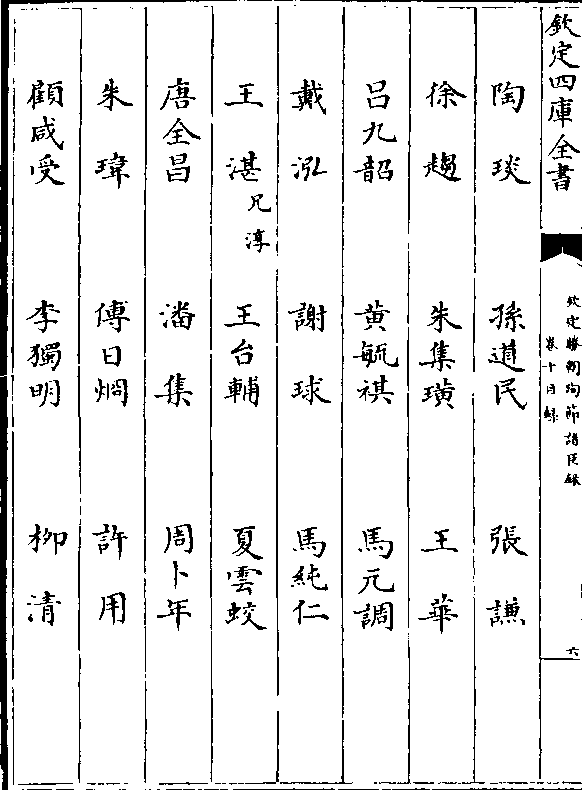 欽定四庫全書
欽定勝朝殉節諸臣録
卷十目録
六
陶琰 孫道民 張謙
徐趨 朱集璜 王華
呂九韶 黄毓祺 馬元調
戴泓 謝球 馬純仁
王湛兄淳 王台輔 夏雲蛟
唐全昌 潘集 周卜年
朱瑋 傅日烱 許用
顧咸受 李獨明 柳清